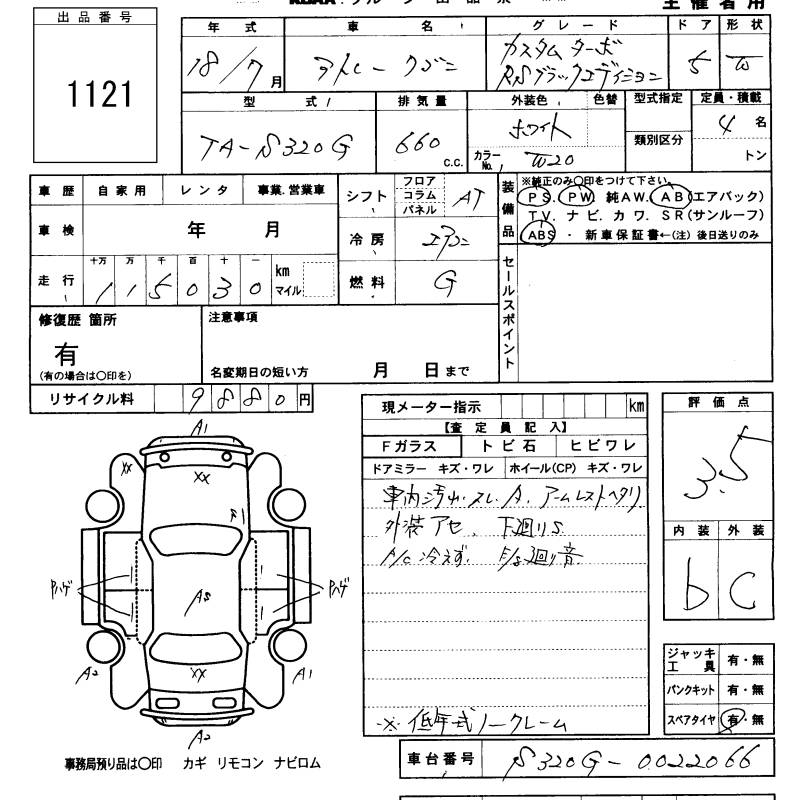 主催者用
出品番号
1121
年式 車名 グレード ドア 形状
18/7月 アトレーワゴン カスタムターボ RSブラックエディション 5 W
型式 排気量 外装色 色替 型式指定 定員・積載
TA-S320G 660 c.c. ホワイト 類別区分 4名
カラーNo. W20 トン
車歴 自家用 レンタ 事業.営業車
車検 年 月
走行 十万 万 千 百 十 一
115030 km マイル
シフト フロア コラム パネル AT
冷房 エアコン
燃料 G
装備品 ※純正のみ〇印をつけて下さい。
PS. PW. 純AW. AB(エアバック)
TV. ナビ. カワ. SR(サンルーフ)
ABS ・ 新車保証書←(注)後日送りのみ
セールスポイント
修復歴 箇所
有
(有の場合は〇印を)
注意事項
名変期日の短い方 月 日まで
リサイクル料 9880円
現メーター指示 km
【査定員記入】
Fガラス トビ石 ヒビワレ
ドアミラー キズ・ワレ ホイール(CP) キズ・ワレ
車内汚れ.スレ.A.アームレストヘタリ
外装アセ、下廻りS
A/C冷えず. F/S廻り音
※低年式ノークレーム
評価点
3.5
内装 外装
b C
ジャッキ工具 有・無
パンクキット 有・無
スペアタイヤ 有・無
A1
XX XX
F1
Pハゲ AS Pハゲ
A2 XX A1
A2
事務局預り品は〇印 カギ リモコン ナビロム
車台番号 S320G-0022066